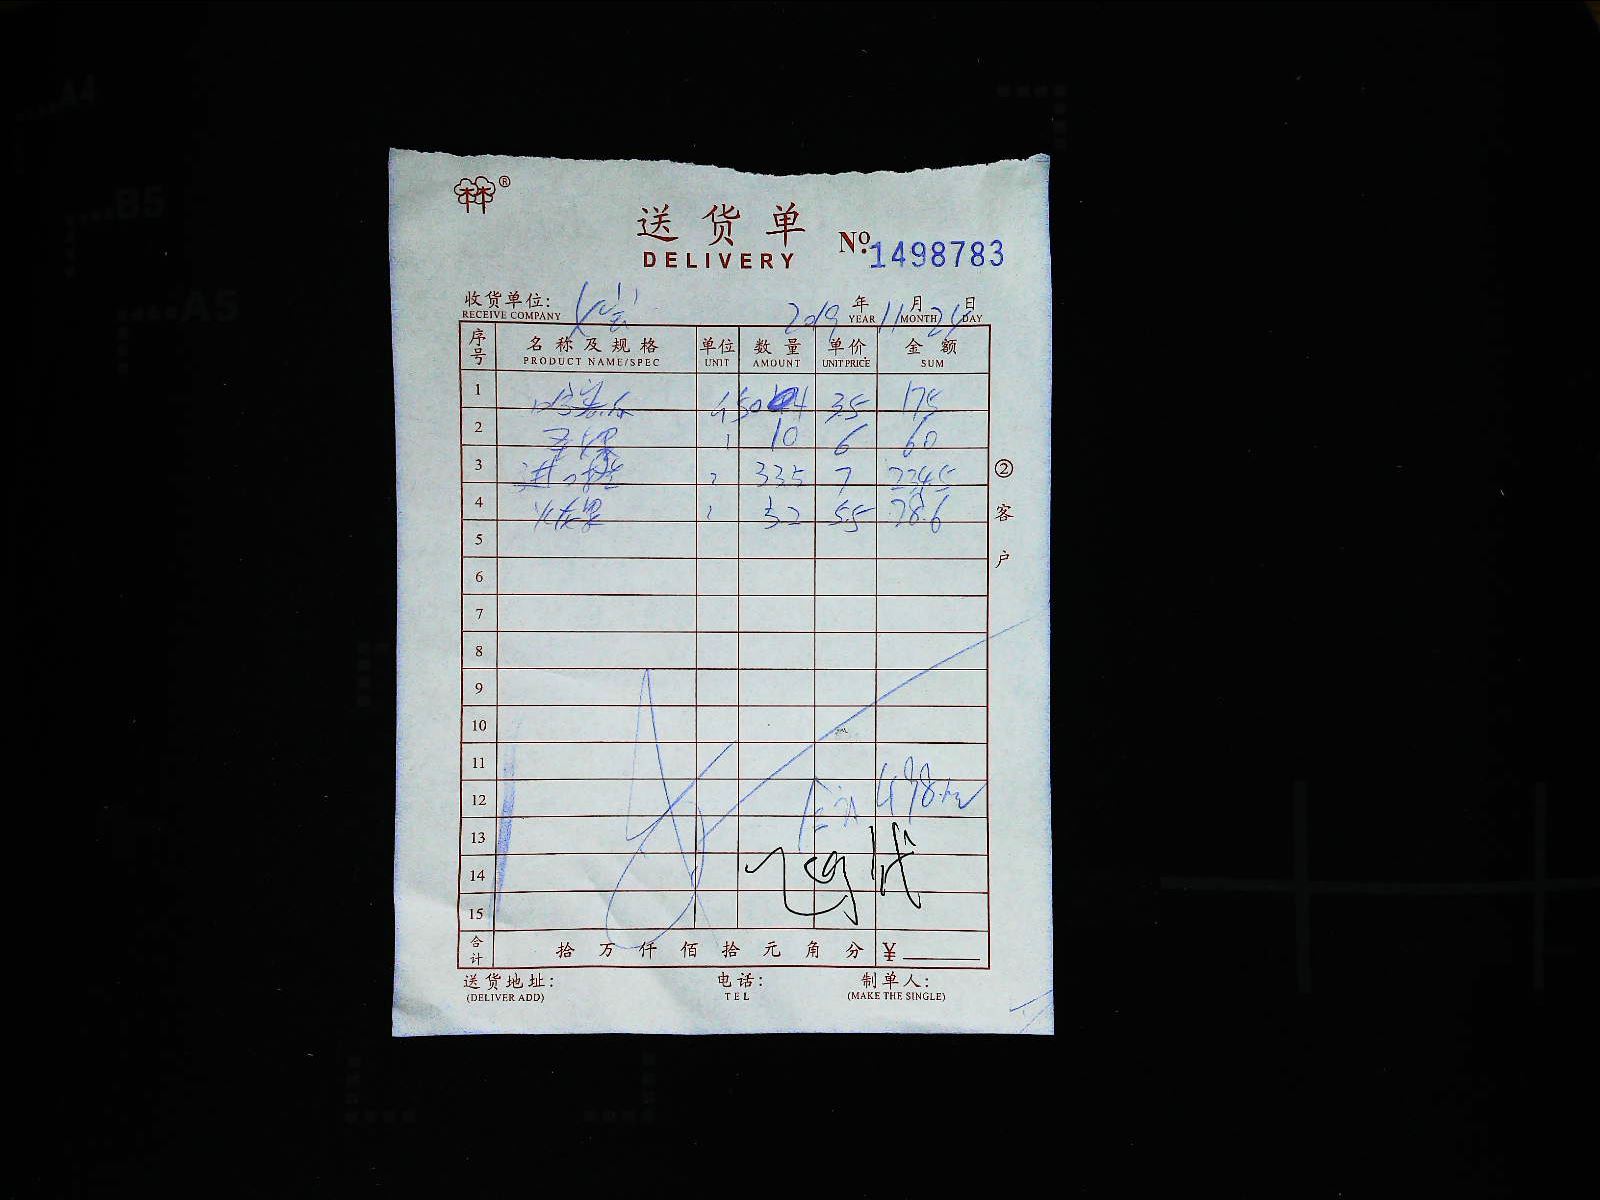 ®
送货单
DELIVERY
№ 1498783
收货单位:
RECEIVE COMPANY
2019 年 11 月 日
YEAR MONTH DAY
序号 名称及规格 单位 数量 单价 金额
PRODUCT NAME/SPEC UNIT AMOUNT UNIT PRICE SUM
1 50 3.5 175
2 10 6 60
3 进口 335 7 234.5
4 火龙果 5.5 78.6
5
6
7
8
9
10
11
12 498.
13
14
15
② 客户
合计 拾 万 仟 佰 拾 元 角 分 ¥
送货地址: 电话: 制单人:
(DELIVER ADD) TEL (MAKE THE SINGLE)
A4
B5
A5